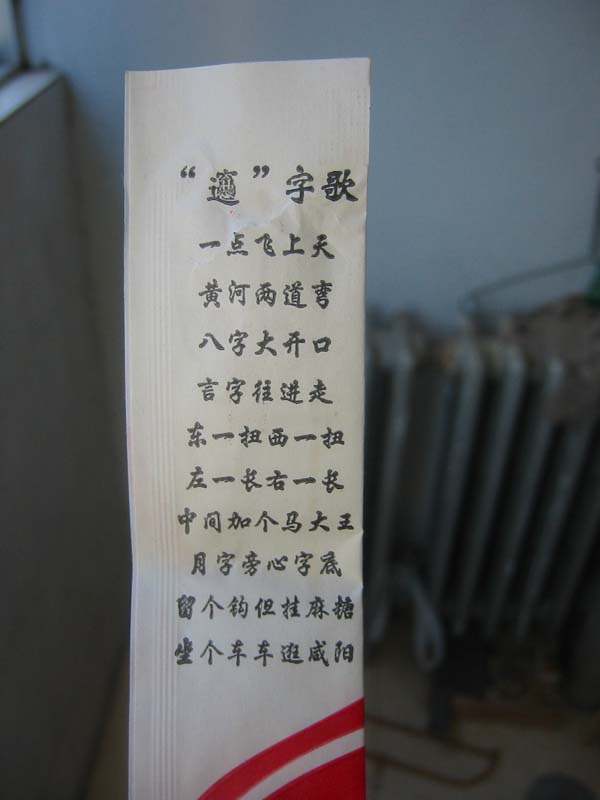 “𰻞”字歌
一点飞上天
黄河两道弯
八字大开口
言字往进走
东一扭西一扭
左一长右一长
中间加个马大王
月字旁心字底
留个钩但挂麻糖
坐个车车逛咸阳